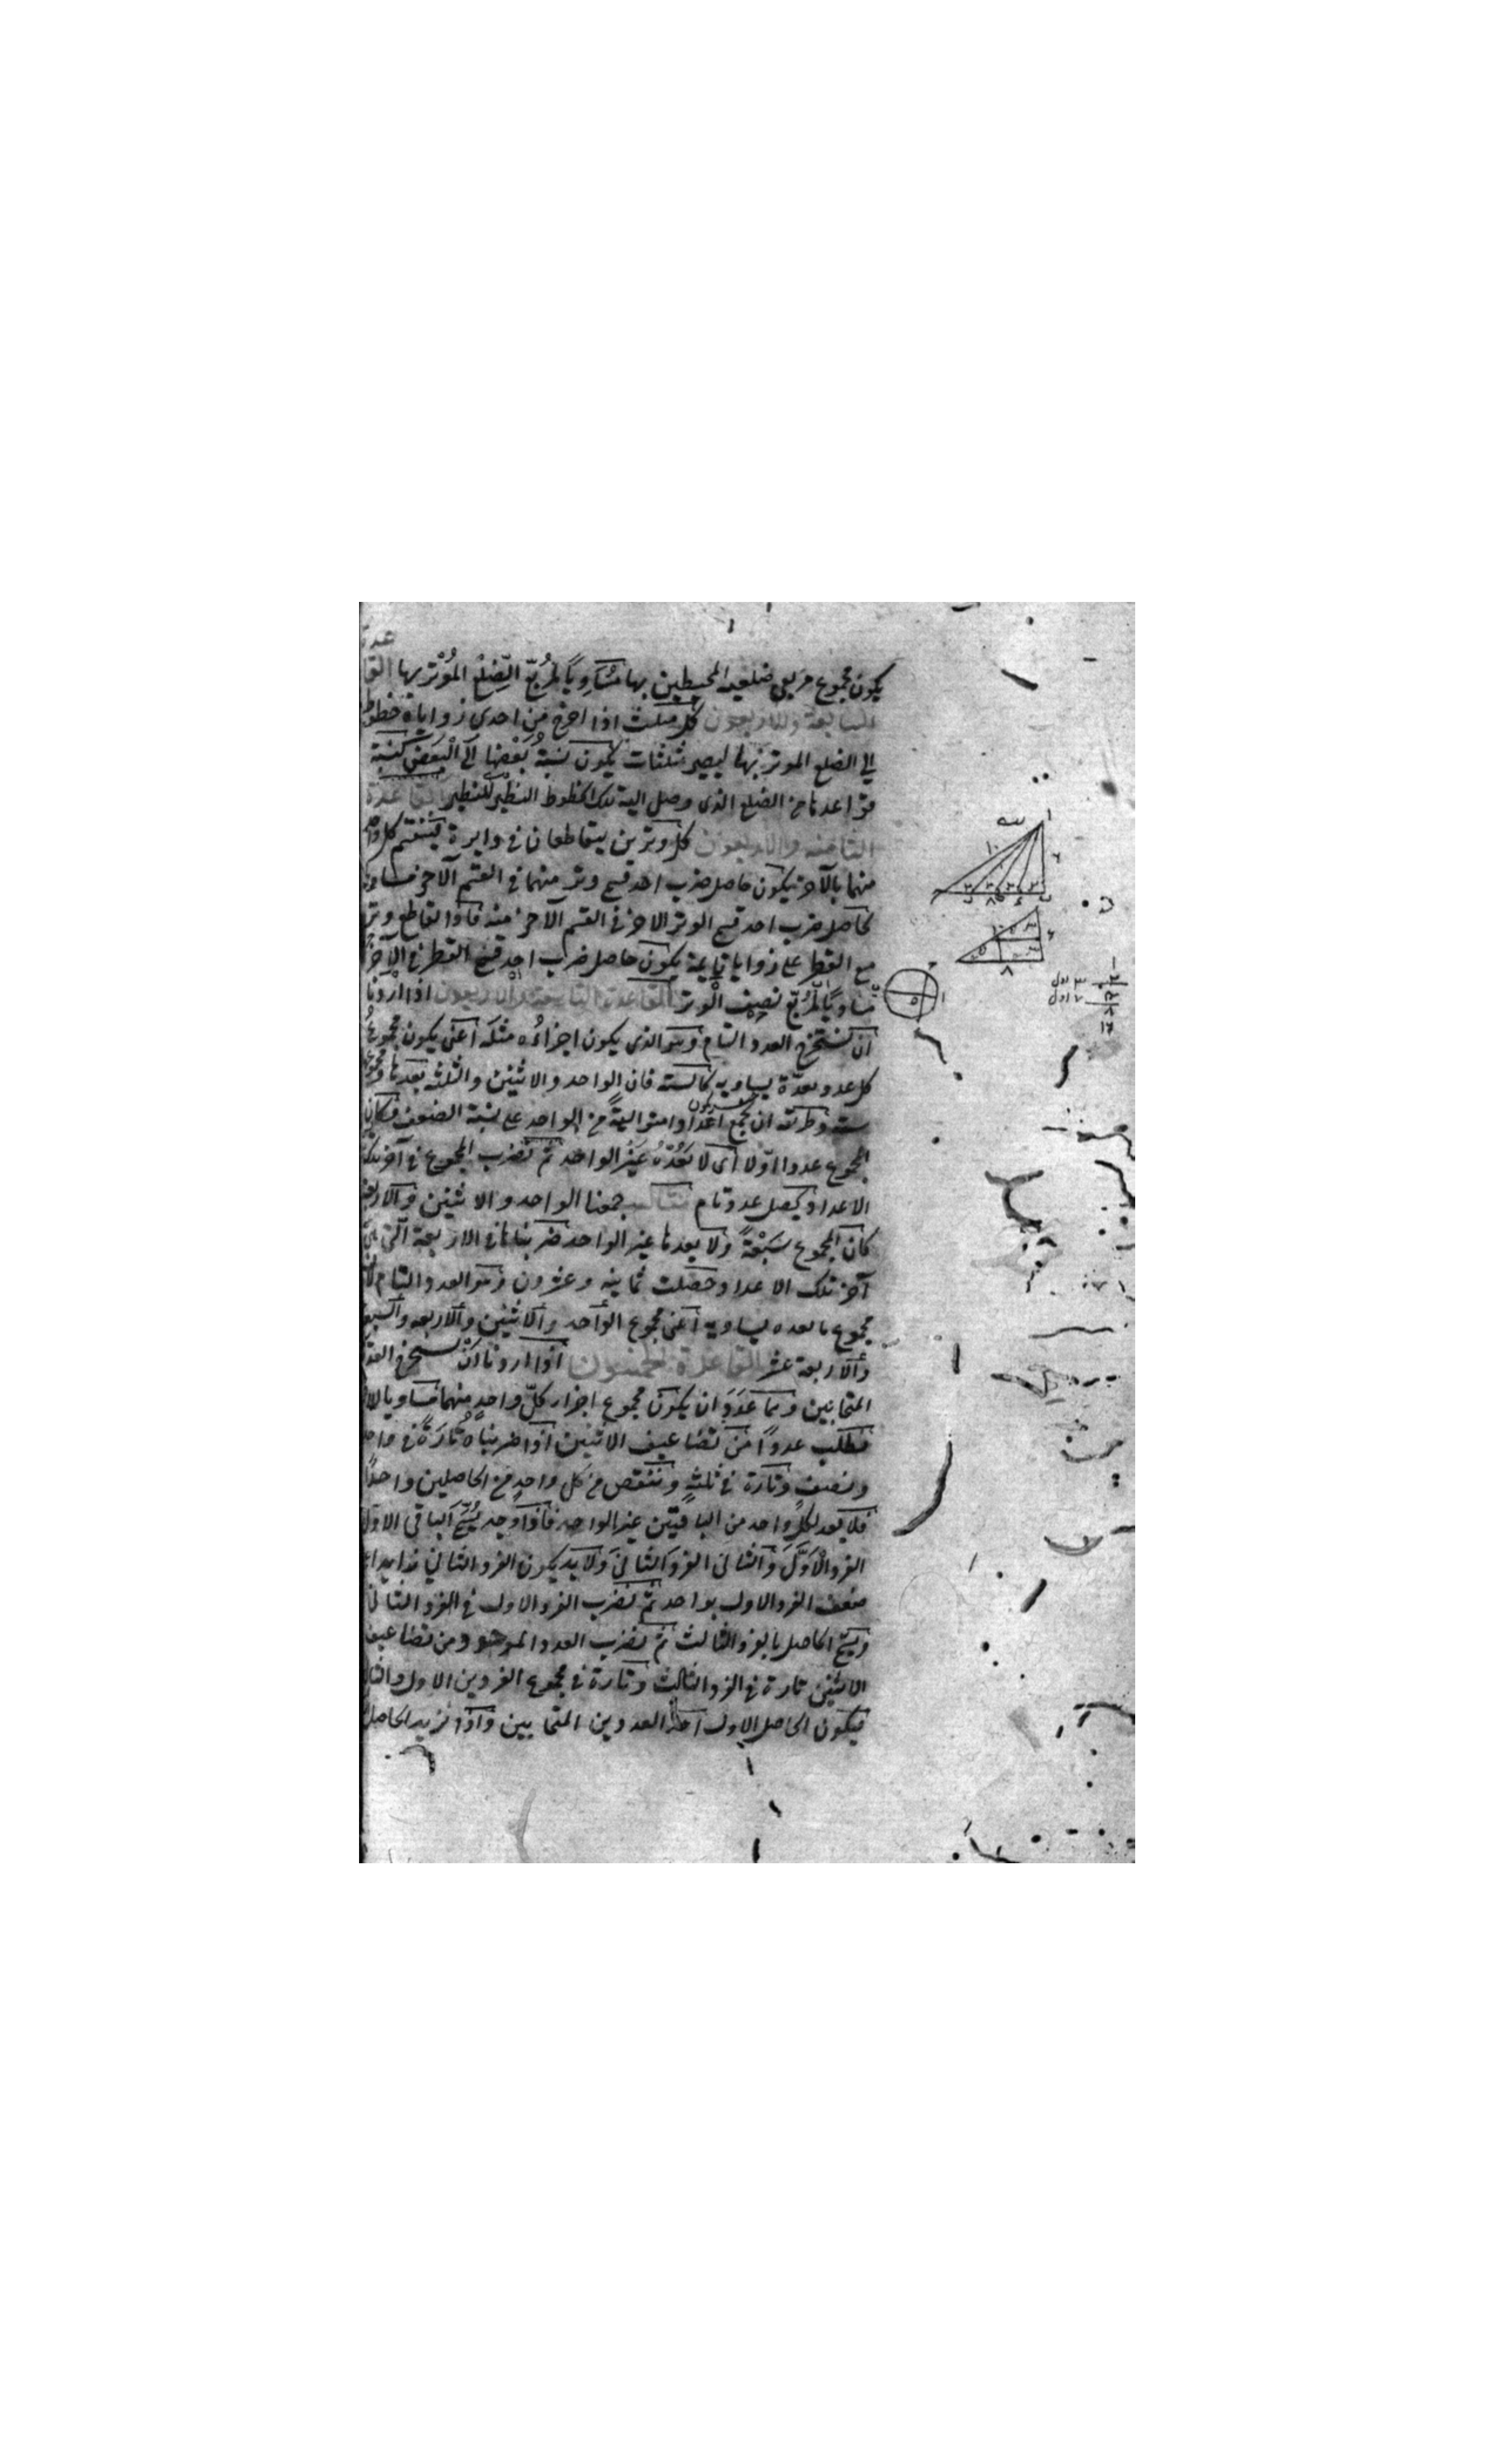 يكون مجموع مربعي ضلعيه المحيطين بها مُسَاوِيًا لمُربّع الضِّلعْ المُوْتر بها القا
عدة
السابعة والاربعون كل مثلث اذا اخرج من احدى زواياه خطوط
الي الضلع الموتر بها ليصير مثلثات يكون نسبة بعضها الى البعض كنسبة
قواعدها من الضلع الذى وصل اليه تلك الخطوط النظير للنظير القاعدة
الثامنه والاربعون كل وترين يتقاطعان في دايرة لينقسم كل واحد
منهما بالآخر يكون حاصل ضرب احد قسمي وتر منهما في القسم الآخر مساويا
لحاصل ضرب احد قسمي الوتر الاخر في القسم الآخر منه فاذا تقاطع وتر
مع القطر على زوايا قايمة يكون حاصل ضرب احد قسمي القطر في الآخر
مساويًا لمربّع نصف الوتر القاعدة التاسعة والاربعون اذا اردنا
ان نستخرج العدد التام وهو الذى يكون اجزاءُه مثله اعنى يكون مجموع
كل عدد يعدّه يساويه كالسته فان الواحد والاثنين والثلثه يعدها ومجموعها
سته وطريقه ان نجمع اعدادا متوالية من الواحد على نسبة الضعف فكان
المجموع عددا اوّلا اى لا يَعُدّهُ غَيْرُ الواحد ثم نضرب المجموع في آخر تلك
الاعداد يحصل عدد تام مثاله جمعنا الواحد والاثنين والاربعة
كان المجموع سَبْعَةً ولا يعدها غير الواحد ضربناها في الاربعة التى هى
آخر تلك الاعداد حصلت ثمانيه وعشرون وهو العدد التام لان
مجموع ما يعده يساويه اعنى مجموع الواحد والاثنين والاربعه والسبعة
والاربعة عشر القاعدة الخمسون اذا اردنا ان نستخرج العددين
المتحابين وهما عَدَدَانِ يكون مجموع اجزاء كلّ واحدٍ منهما مساويا للاخر
فنطلب عددًا من تضاعيف الاثنين اذا ضربناه تارَةً في واحد
ونصفٍ وتارة في ثلثةٍ وننقص من كل واحدٍ من الحاصلين واحدًا
فلا يعد لكل واحد من الباقيتين غير الواحد فاذا وجد يُسَمّى الباقي الاوّل
الفرد الاوّلَ والثانى الفردَ الثانىَ ولابد يكون الفرد الثاني زايدا على
ضعف الفرد الاول بواحد ثمّ نضرب الفرد الاول في الفرد الثاني
ويسمّى الحاصل بالفرد الثالث ثم نضرب العدد الموجود من تضاعيف
الاثنين تارة في الفرد الثالث وتارة في مجموع الفردين الاول والثاني
فيكون الحاصل الاول احد العددين المتحابين واذا نزيد الحاصل